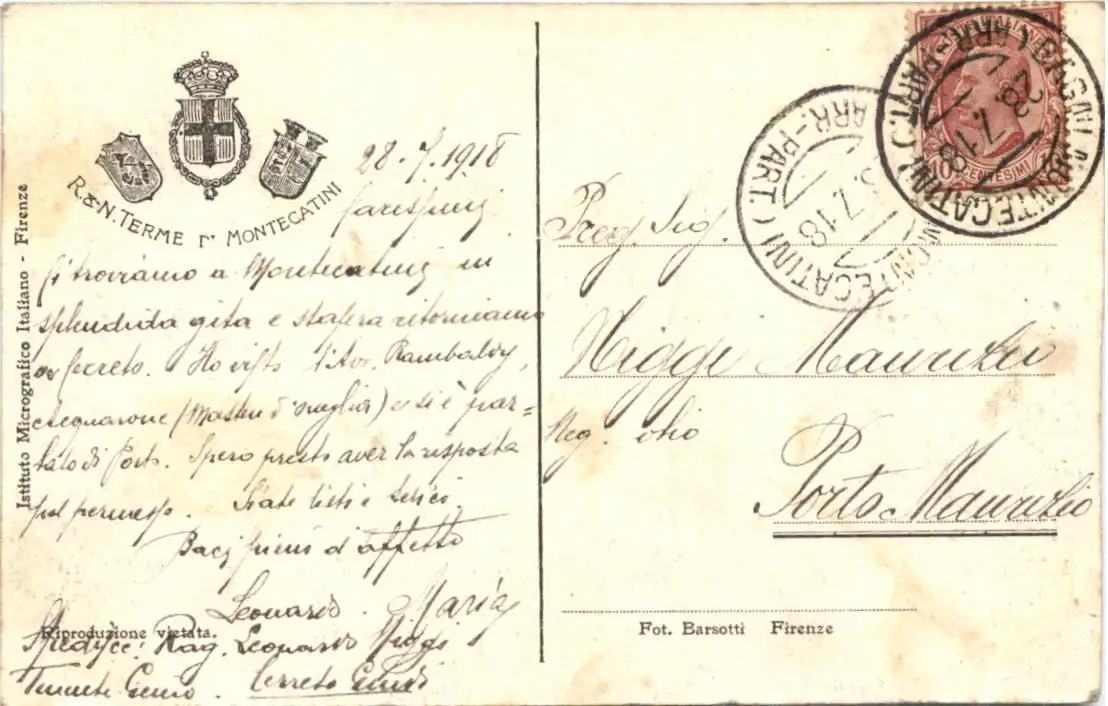 R. & N. TERME DI MONTECATINI
Istituto Micrografico Italiano - Firenze
28-7-1918
Carissimi
Ci troviamo a Montecatini in
splendida gita e stasera ritorniamo
a Cerreto. Ho visto l'Avv. Rambaldi,
Acquarone e si è par=
lato di Porto. Spero presto aver la risposta
pel permesso. Siate lieti e felici
Baci pieni d'affetto
Leonardo. Maria
Riproduzione vietata.
Spedisce: Rag. Leonardo Niggi
Tenente Genio. Cerreto Guidi
10 CENTESIMI
BAGNI MONTECATINI (ARR.-PART.)
28.7.18
MONTECATINI (ARR.-PART.)
7.18
Preg. Sig.
Niggi Maurizio
Neg. olio
Porto Maurizio
Fot. Barsotti Firenze